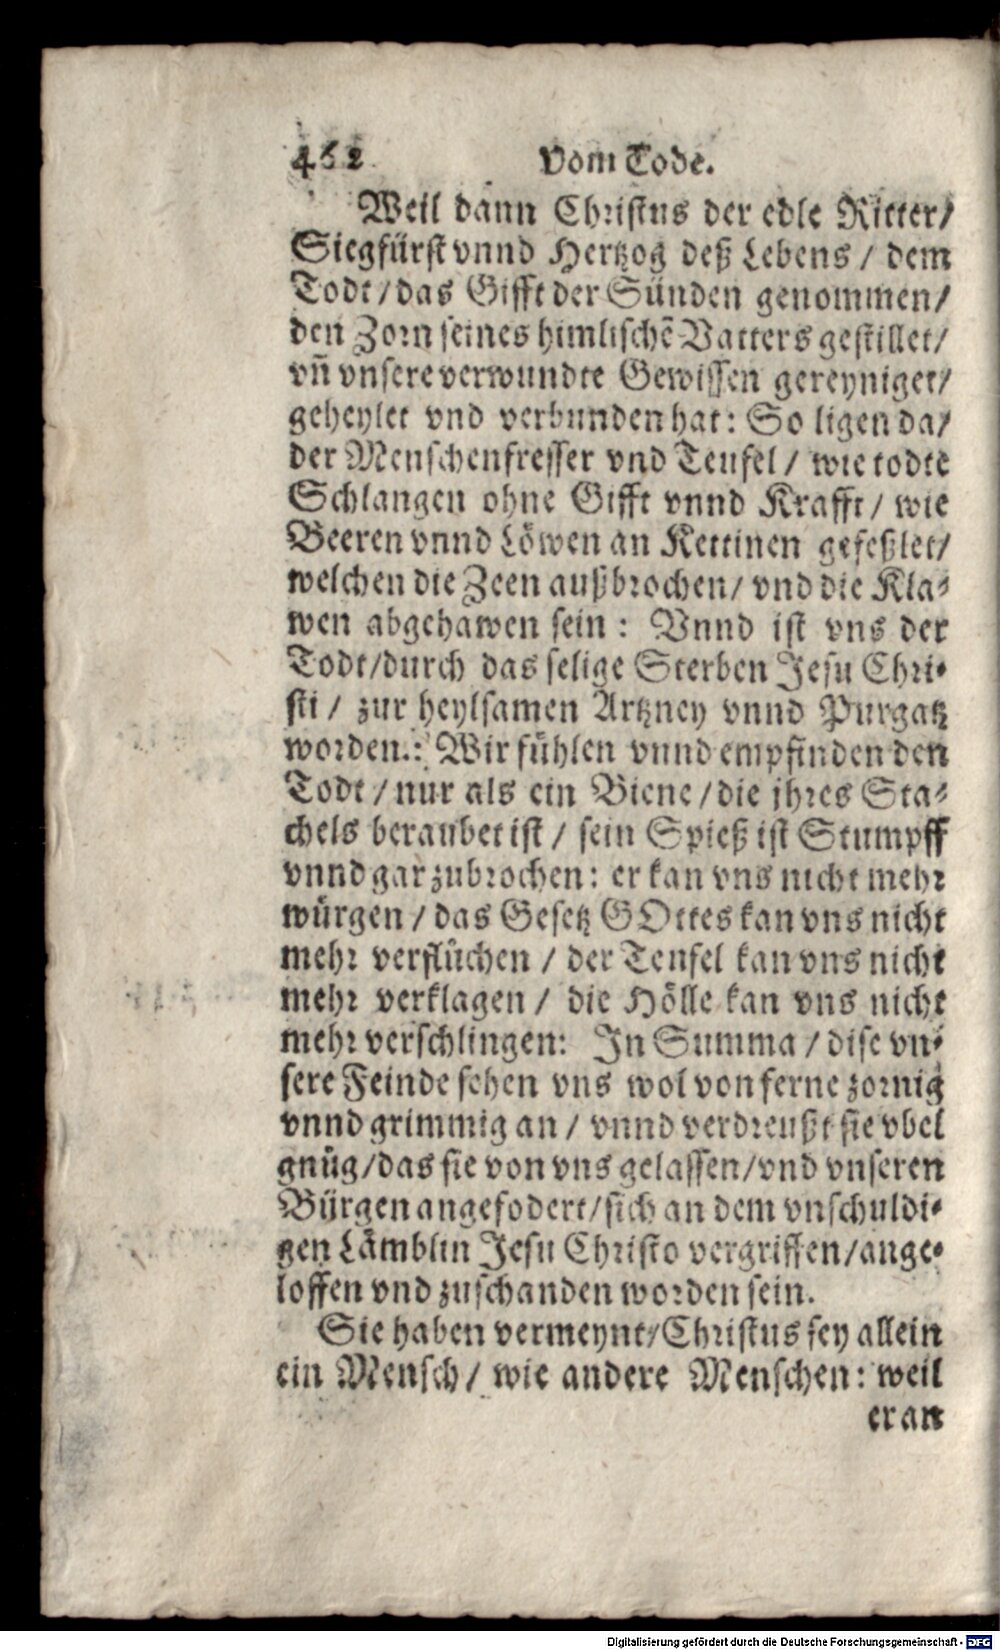 462 Vom Tode.
Weil dann Christus der edle Ritter/
Siegfürst vnnd Hertzog deß Lebens / dem
Todt / das Gifft der Sünden genommen/
den Zorn seines himlischẽ Vatters gestillet/
vñ vnsere verwundte Gewissen gereyniget/
geheylet vnd verbunden hat: So ligen da/
der Menschenfresser vnd Teufel / wie todte
Schlangen ohne Gifft vnnd Krafft / wie
Beeren vnnd Löwen an Kettinen gefeßlet/
welchen die Zeen außbrochen / vnd die Kla-
wen abgehawen sein : Vnnd ist vns der
Todt/durch das selige Sterben Jesu Chri-
sti / zur heylsamen Artzney vnnd Purgatz
worden.: Wir fühlen vnnd empfinden den
Todt / nur als ein Biene / die jhres Sta-
chels beraubet ist / sein Spieß ist Stumpff
vnnd gar zubrochen: er kan vns nicht mehr
würgen / das Gesetz GOttes kan vns nicht
mehr verflůchen / der Teufel kan vns nicht
mehr verklagen / die Hölle kan vns nicht
mehr verschlingen: In Summa / dise vn-
sere Feinde sehen vns wol von ferne zornig
vnnd grimmig an / vnnd verdreußt sie vbel
gnůg/das sie von vns gelassen/vnd vnseren
Bürgen angefodert/sich an dem vnschuldi-
gen Lämblin Jesu Christo vergriffen/ange-
loffen vnd zuschanden worden sein.
Sie haben vermeynt/Christus sey allein
ein Mensch / wie andere Menschen: weil
er an
Digitalisierung gefördert durch die Deutsche Forschungsgemeinschaft - DFG